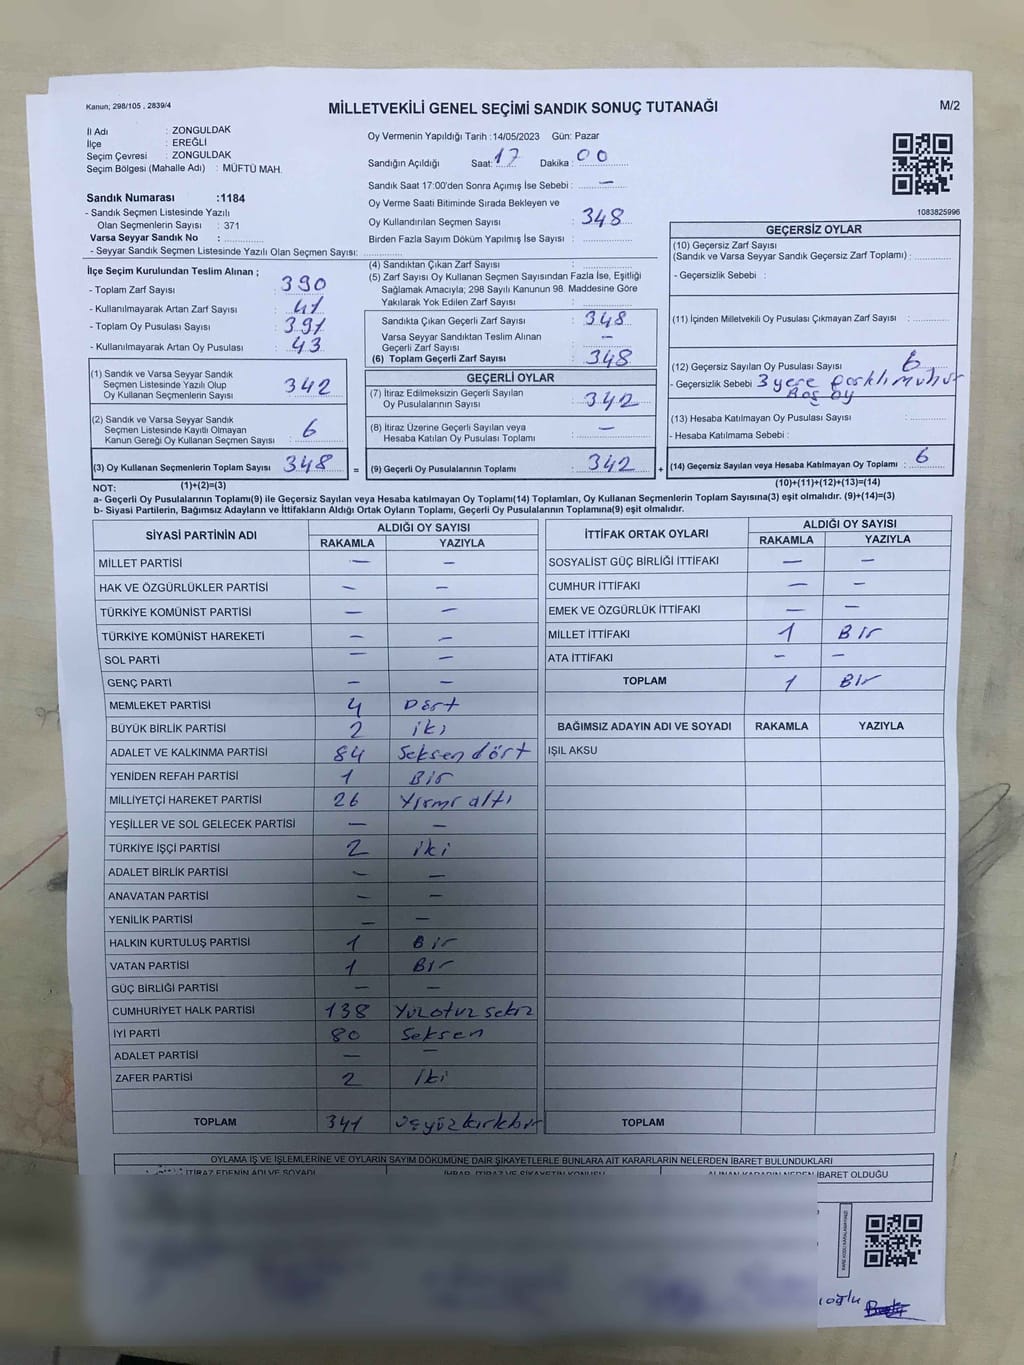 Kanun; 298/105 , 2839/4
MİLLETVEKİLİ GENEL SEÇİMİ SANDIK SONUÇ TUTANAĞI
M/2
İl Adı : ZONGULDAK
İlçe : EREĞLİ
Seçim Çevresi : ZONGULDAK
Seçim Bölgesi (Mahalle Adı) : MÜFTÜ MAH.
Sandık Numarası :1184
- Sandık Seçmen Listesinde Yazılı
Olan Seçmenlerin Sayısı : 371
Varsa Seyyar Sandık No :
- Seyyar Sandık Seçmen Listesinde Yazılı Olan Seçmen Sayısı:
Oy Vermenin Yapıldığı Tarih :14/05/2023 Gün: Pazar
Sandığın Açıldığı Saat: 17 Dakika : 00
Sandık Saat 17:00'den Sonra Açımış İse Sebebi : —
Oy Verme Saati Bitiminde Sırada Bekleyen ve
Oy Kullandırılan Seçmen Sayısı : 348
Birden Fazla Sayım Döküm Yapılmış İse Sayısı :
1083825996
İlçe Seçim Kurulundan Teslim Alınan ;
- Toplam Zarf Sayısı : 390
- Kullanılmayarak Artan Zarf Sayısı : 41
- Toplam Oy Pusulası Sayısı : 391
- Kullanılmayarak Artan Oy Pusulası : 43
(1) Sandık ve Varsa Seyyar Sandık
Seçmen Listesinde Yazılı Olup
Oy Kullanan Seçmenlerin Sayısı : 342
(2) Sandık ve Varsa Seyyar Sandık
Seçmen Listesinde Kayıtlı Olmayan
Kanun Gereği Oy Kullanan Seçmen Sayısı : 6
(3) Oy Kullanan Seçmenlerin Toplam Sayısı : 348
(1)+(2)=(3)
(4) Sandıktan Çıkan Zarf Sayısı :
(5) Zarf Sayısı Oy Kullanan Seçmen Sayısından Fazla İse, Eşitliği
Sağlamak Amacıyla; 298 Sayılı Kanunun 98. Maddesine Göre
Yakılarak Yok Edilen Zarf Sayısı :
Sandıkta Çıkan Geçerli Zarf Sayısı : 348
Varsa Seyyar Sandıktan Teslim Alınan
Geçerli Zarf Sayısı : —
(6) Toplam Geçerli Zarf Sayısı : 348
GEÇERLİ OYLAR
(7) İtiraz Edilmeksizin Geçerli Sayılan
Oy Pusulalarının Sayısı : 342
(8) İtiraz Üzerine Geçerli Sayılan veya
Hesaba Katılan Oy Pusulası Toplamı : —
= (9) Geçerli Oy Pusulalarının Toplamı : 342
GEÇERSİZ OYLAR
(10) Geçersiz Zarf Sayısı
(Sandık ve Varsa Seyyar Sandık Geçersiz Zarf Toplamı) :
- Geçersizlik Sebebi :
(11) İçinden Milletvekili Oy Pusulası Çıkmayan Zarf Sayısı :
(12) Geçersiz Sayılan Oy Pusulası Sayısı : 6
- Geçersizlik Sebebi : 3 yere farklı mühür
Boş oy
(13) Hesaba Katılmayan Oy Pusulası Sayısı :
- Hesaba Katılmama Sebebi :
+ (14) Geçersiz Sayılan veya Hesaba Katılmayan Oy Toplamı : 6
(10)+(11)+(12)+(13)=(14)
NOT:
a- Geçerli Oy Pusulalarının Toplamı(9) ile Geçersiz Sayılan veya Hesaba katılmayan Oy Toplamı(14) Toplamları, Oy Kullanan Seçmenlerin Toplam Sayısına(3) eşit olmalıdır. (9)+(14)=(3)
b- Siyasi Partilerin, Bağımsız Adayların ve İttifakların Aldığı Ortak Oyların Toplamı, Geçerli Oy Pusulalarının Toplamına(9) eşit olmalıdır.
SİYASİ PARTİNİN ADI ALDIĞI OY SAYISI
RAKAMLA YAZIYLA
MİLLET PARTİSİ — —
HAK VE ÖZGÜRLÜKLER PARTİSİ — —
TÜRKİYE KOMÜNİST PARTİSİ — —
TÜRKİYE KOMÜNİST HAREKETİ — —
SOL PARTİ — —
GENÇ PARTİ — —
MEMLEKET PARTİSİ 4 Dört
BÜYÜK BİRLİK PARTİSİ 2 iki
ADALET VE KALKINMA PARTİSİ 84 Seksen dört
YENİDEN REFAH PARTİSİ 1 Bir
MİLLİYETÇİ HAREKET PARTİSİ 26 Yirmi altı
YEŞİLLER VE SOL GELECEK PARTİSİ — —
TÜRKİYE İŞÇİ PARTİSİ 2 iki
ADALET BİRLİK PARTİSİ — —
ANAVATAN PARTİSİ — —
YENİLİK PARTİSİ — —
HALKIN KURTULUŞ PARTİSİ 1 Bir
VATAN PARTİSİ 1 Bir
GÜÇ BİRLİĞİ PARTİSİ — —
CUMHURİYET HALK PARTİSİ 138 Yüzotuz sekiz
İYİ PARTİ 80 Seksen
ADALET PARTİSİ — —
ZAFER PARTİSİ 2 İki
TOPLAM 341 üçyüzkırkbir
İTTİFAK ORTAK OYLARI ALDIĞI OY SAYISI
RAKAMLA YAZIYLA
SOSYALİST GÜÇ BİRLİĞİ İTTİFAKI — —
CUMHUR İTTİFAKI — —
EMEK VE ÖZGÜRLÜK İTTİFAKI — —
MİLLET İTTİFAKI 1 Bir
ATA İTTİFAKI — —
TOPLAM 1 Bir
BAĞIMSIZ ADAYIN ADI VE SOYADI RAKAMLA YAZIYLA
IŞIL AKSU
TOPLAM
OYLAMA İŞ VE İŞLEMLERİNE VE OYLARIN SAYIM DÖKÜMÜNE DAİR ŞİKAYETLERLE BUNLARA AİT KARARLARIN NELERDEN İBARET BULUNDUKLARI
İTİRAZ EDENİN ADI VE SOYADI İHBAR, İTİRAZ VE ŞİKAYETİN KONUSU ALINAN KARARIN NEDEN İBARET OLDUĞU
oğlu